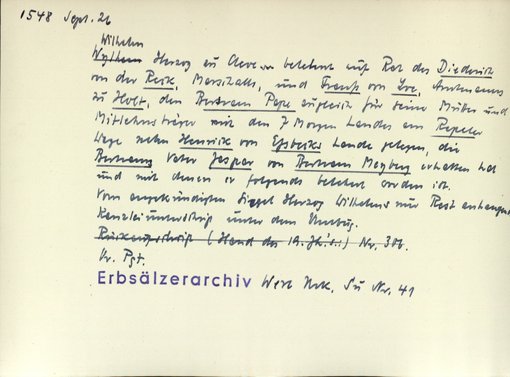 1548 Sept. 26
Wilhelm
Wylhem Herzog zu Cleve ... belehnt auf Rat des Diederich
von der Reck, Marschalls, und von Loe, Amtmannes
zu Holt, den Bertram Pape zugleich für seine Mutter und
Mitlehnsträger mit den 7 Morgen Landes am
Wege neben Henrick von Lande gelegen, die
Bertrams Vater Jaspar von Bertram Meyberg erhalten hat
und mit denen er folgends belehnt worden ist.
Vom angekündigten Siegel Herzog Wilhelms nur Rest anhangend
Kanzleiunterschrift unter dem Umbug.
Rückaufschrift (Hand des 19. Jh's.) Nr. 306.
Or. Pgt.
Erbsälzerarchiv Werl Urk. Nr. 41